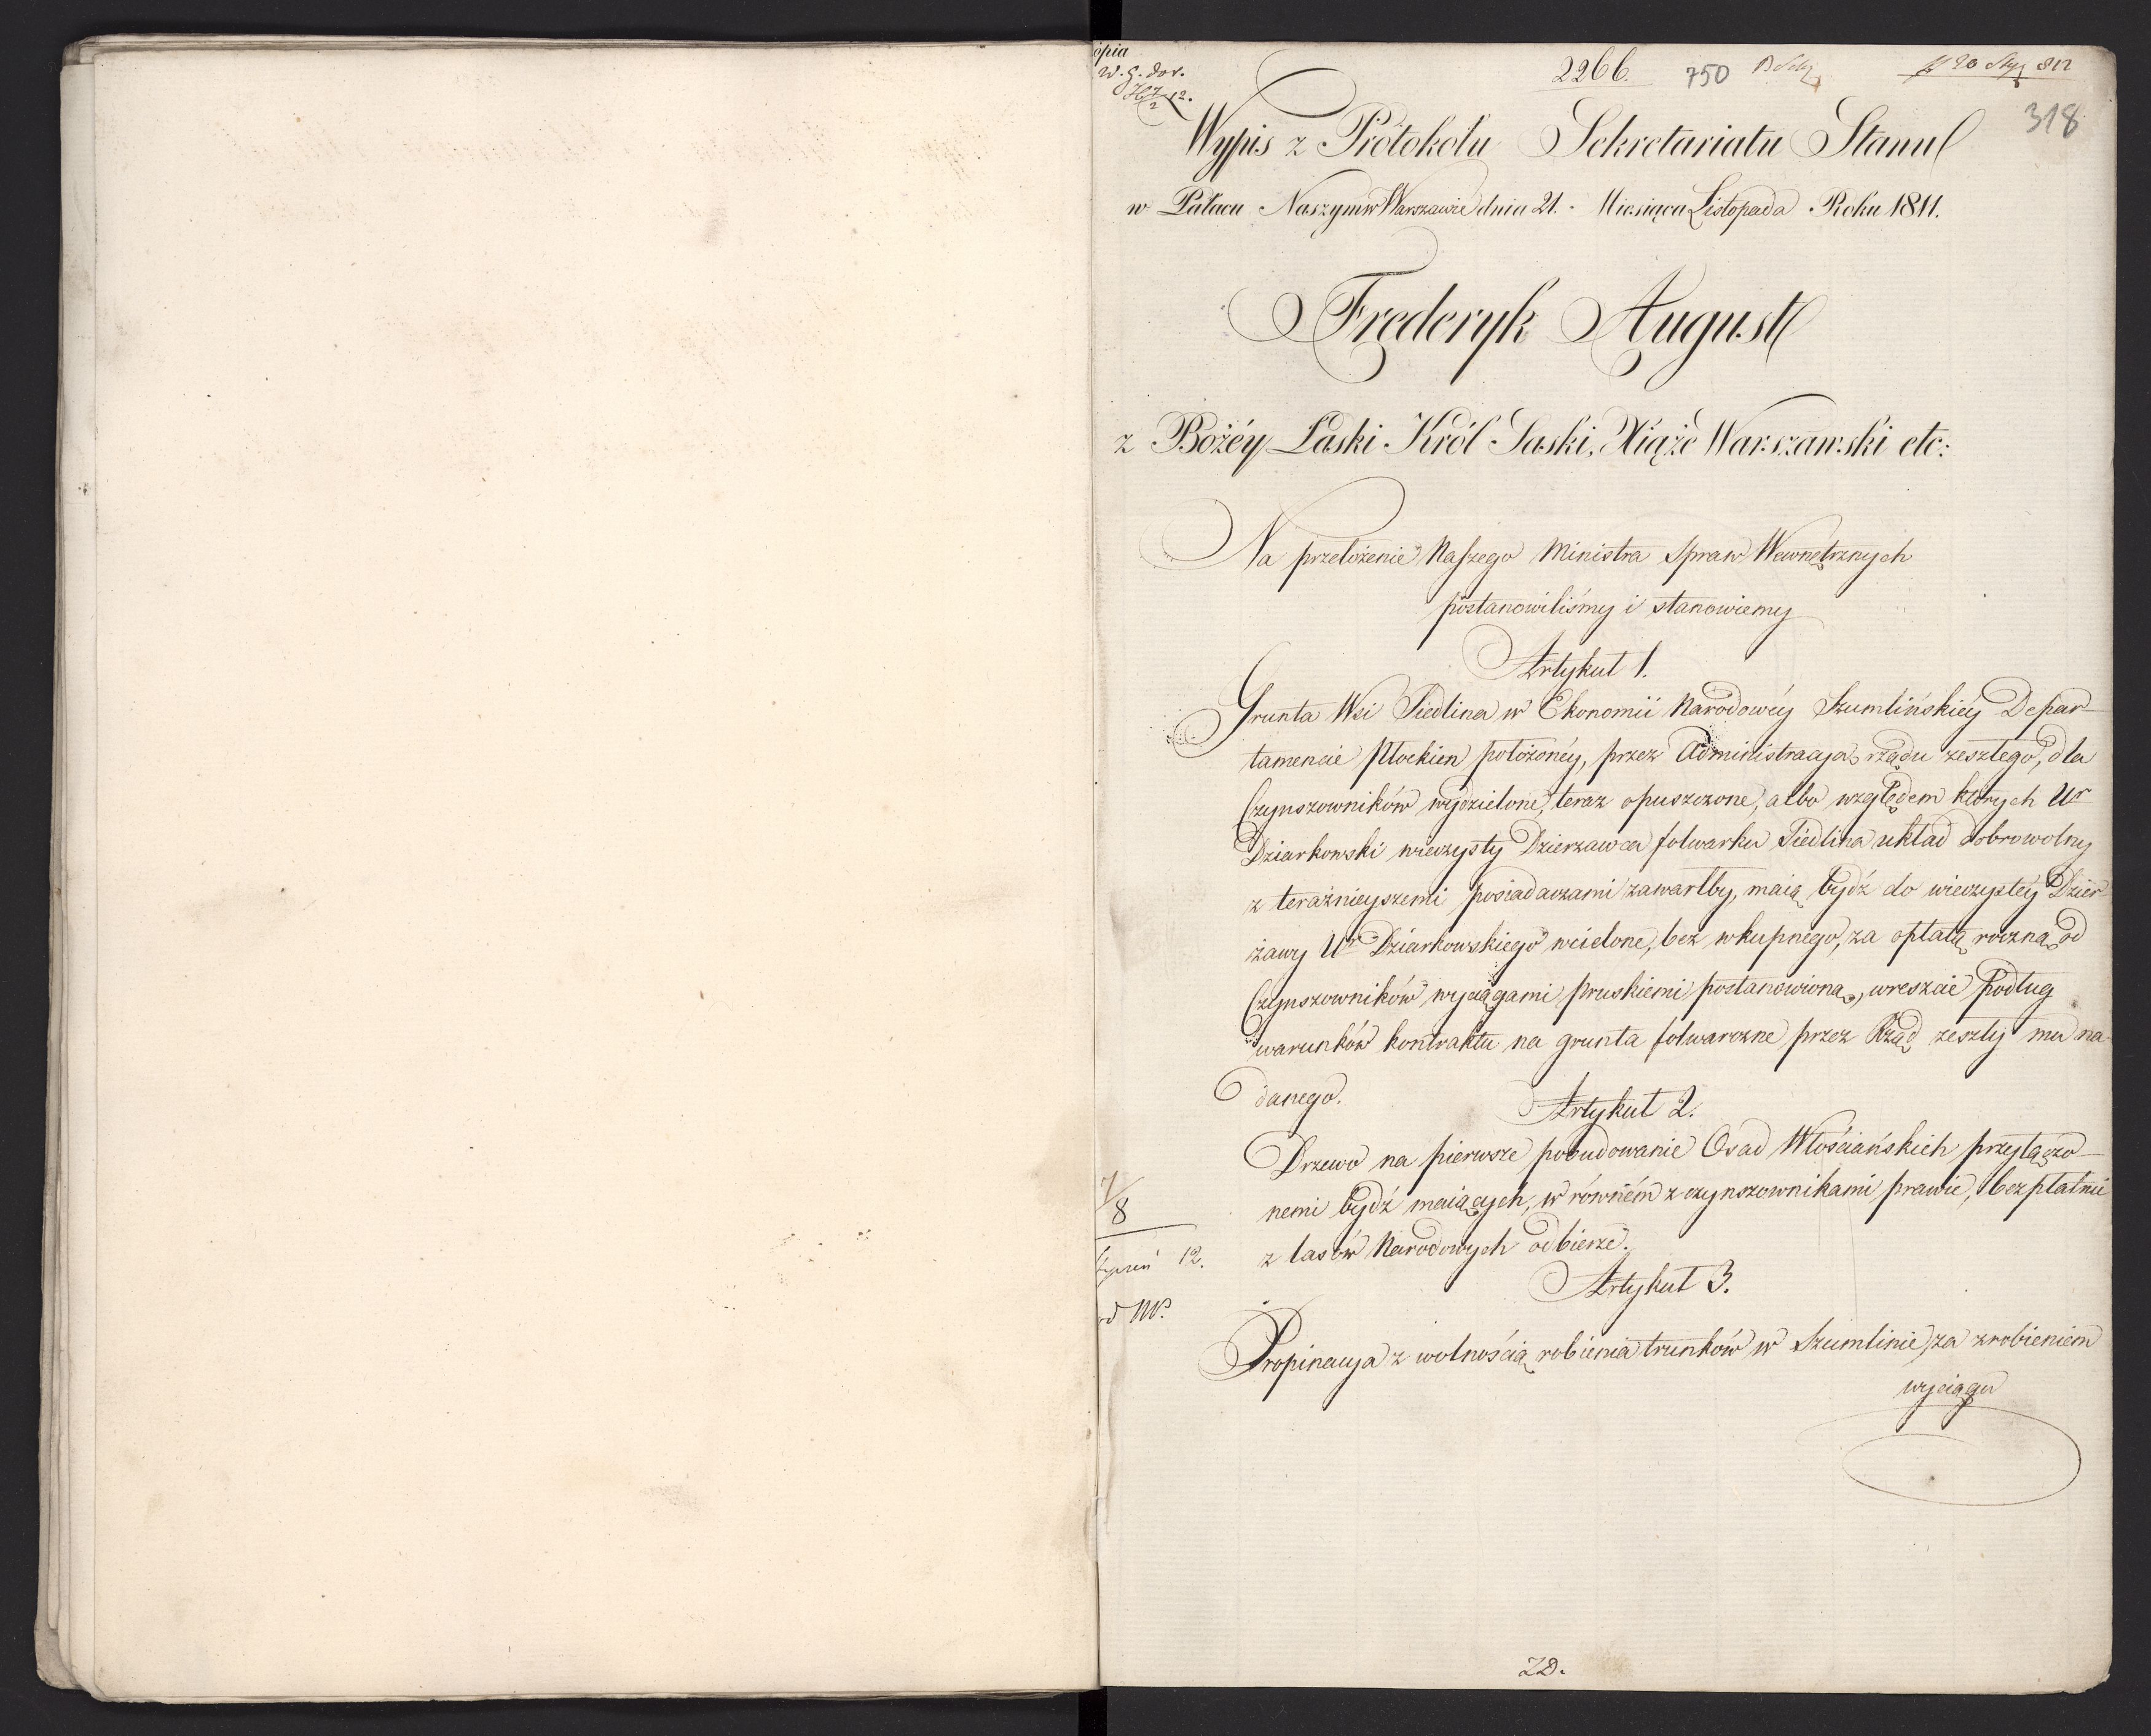 opia
2266. 750
318
Wypis z Protokołu Sekretariatu Stanu
w Pałacu Naszym w Warszawie dnia 21. Miesiąca Listopada Roku 1811.
Frederyk August
z Bożéy Łaski Król Saski, Xiąże Warszawski etc:
Na przełożenie Naszego Ministra Spraw Wewnętrznych
postanowiliśmy i stanowiemy
Artykuł 1.
Grunta Wsi Siedlina w Ekonomii Narodowéy Szumlińskiey Depar-
tamencie Płockim położonéy, przez Administracyą rządu zeszłego, dla
Czynszowników wydzielone, teraz opuszczone, albo względem których Ur
Dziarkowski wieczysty Dzierzawca folwarku Siedlina układ dobrowolny
z teraźnieyszemi posiadaczami zawarłby, maią bydź do wieczystéy Dzier-
żawy Ur Dziarkowskiego wcielone, bez wkupnego, za opłatą roczną od
Czynszowników wyciągami pruskiemi postanowioną, wreszcie podług
warunków kontraktu na grunta folwarczne przez Rząd zeszły mu na
danego.
Artykuł 2.
Drzewo na pierwsze pobudowanie Osad Włościańskich przyłączo-
nemi bydź maiących, w równém z czynszownikami prawie, bezpłatnie
z lasów Narodowych odbierze.
7/8
12.
Artykuł 3.
Propinacya z wolnością robienia trunków w Szumlinie za zrobieniem
wyciągu